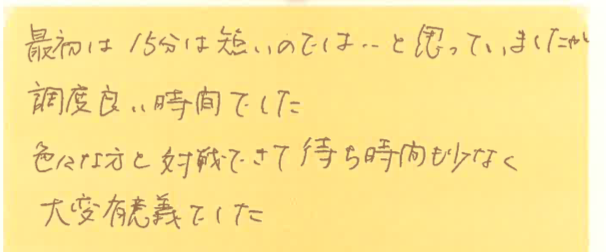 最初は15分は短いのでは‥と思っていましたが
調度良い時間でした
色々な方と対戦できて待ち時間も少なく
大変有意義でした